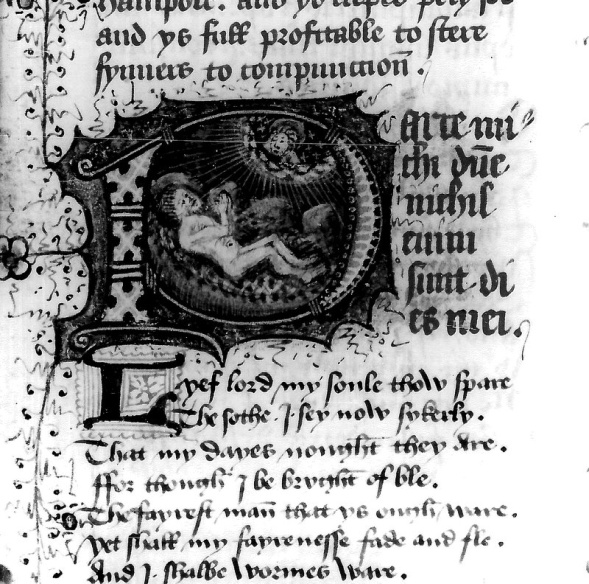 hampole. and ys cleped pety Job
and ys full profitable to stere
synners to compunccioñ.
Parce mi
chi dñe
nichil
enim
sunt di
es mei.
Lyef lord my soule thow spare
The sothe I sey now sykerly.
That my dayes nought they are.
ffor though I be bryght of ble.
The fayrest mañ that ys ough ware.
yet shall my fayrenesse fade and fle.
And I shalbe wormes ware.